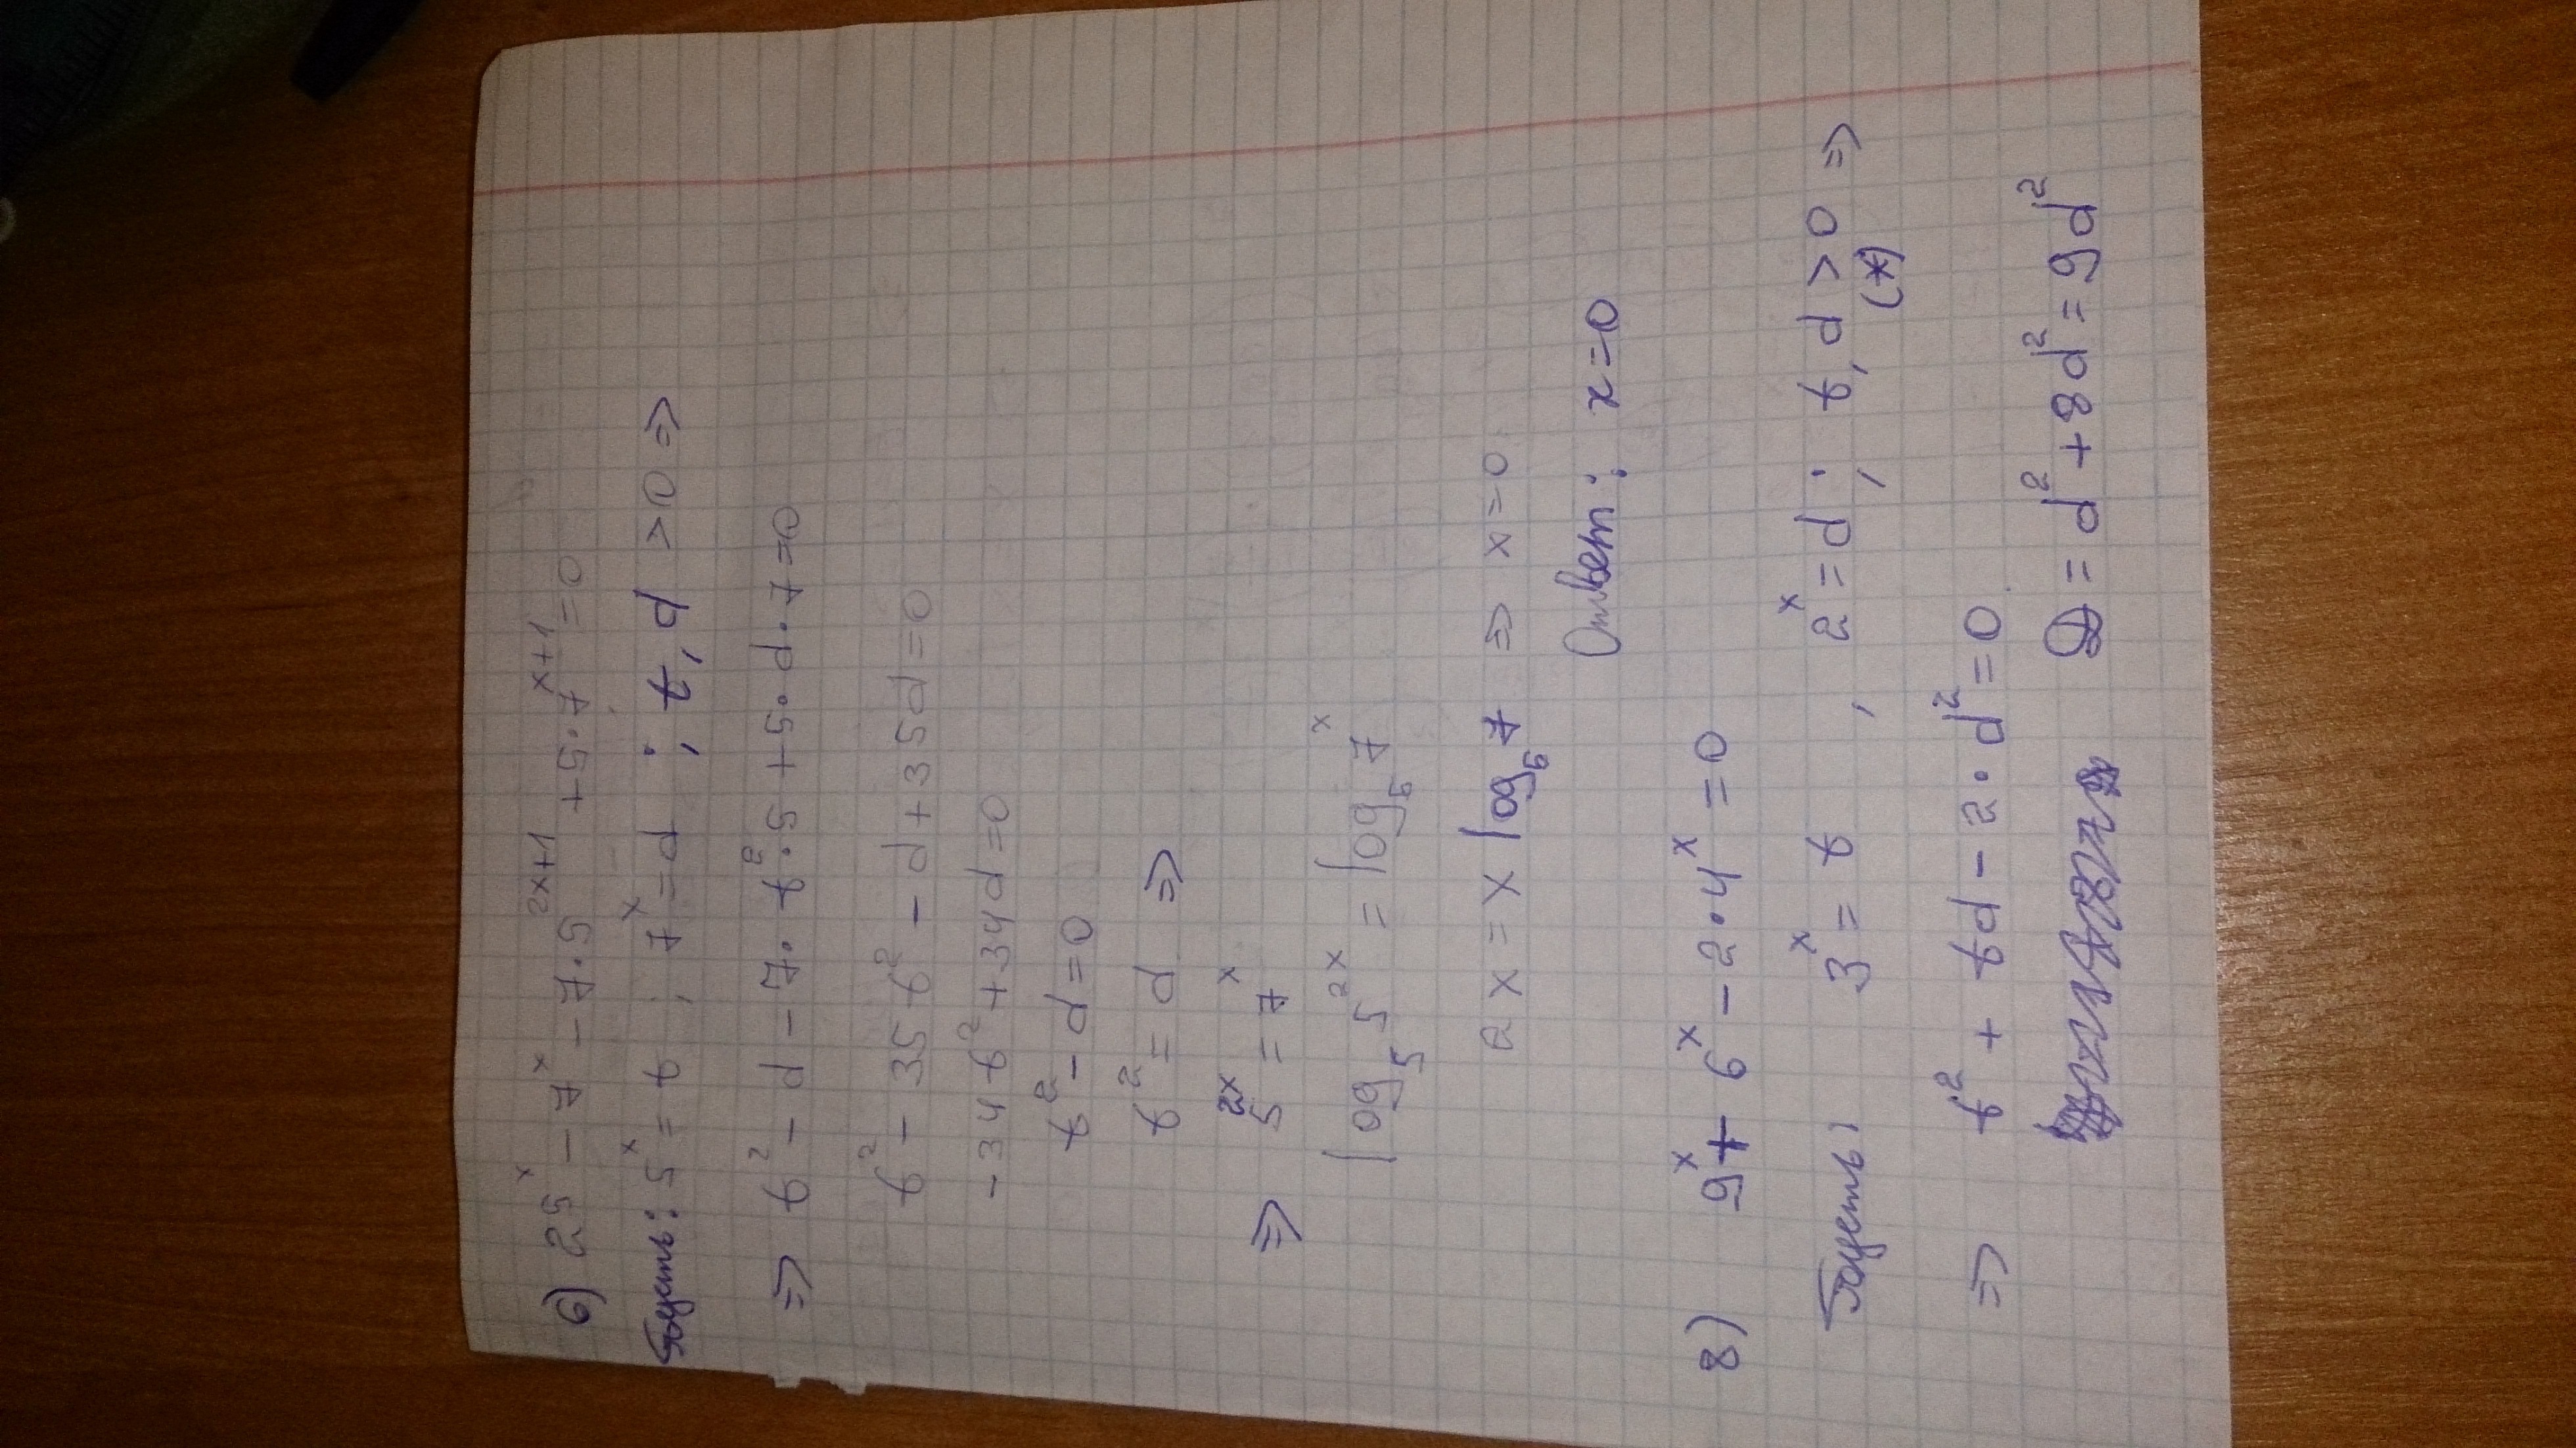 6) 25^x - 7^x - 7·5^{2x+1} + 5·7^{x+1} = 0
Пусть: 5^x = t ; 7^x = d ; t, d > 0 =>
=> t^2 - d - 7·t^2·5 + 5·d·7 = 0
t^2 - 35t^2 - d + 35d = 0
-34t^2 + 34d = 0
t^2 - d = 0
t^2 = d =>
=> 5^{2x} = 7^x
log_5 5^{2x} = log_5 7^x
2x = x log_5 7 => x = 0
Ответ: x = 0
8) 9^x + 6^x - 2·4^x = 0
Пусть: 3^x = t , 2^x = d ; t, d > 0 =>
(*)
=> t^2 + td - 2·d^2 = 0
D = d^2 + 8d^2 = 9d^2